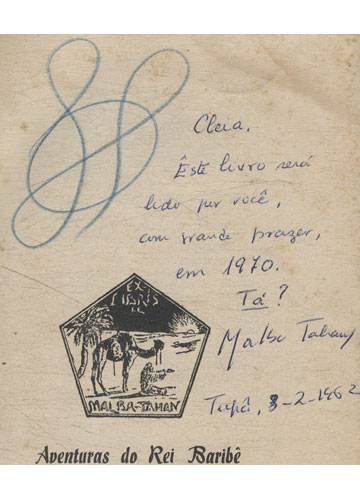 Cleia.
Êste livro será
lido por você,
com grande prazer,
em 1970.
Tá?
Malba Tahan
EX-
LIBRIS
MALBA-TAHAN
Tupã, 3-2-1962
Aventuras do Rei Baribê